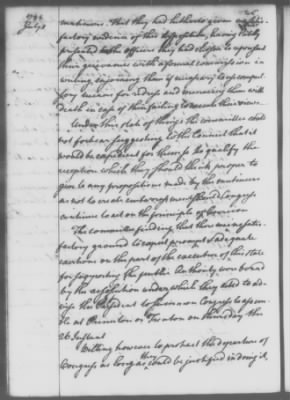 1783
July 1
mutineers. that they had hitherto given
factory evidence of their disposition, having lately
presented to the officers they had chosen to represent
their grievances with a formal commission in
writing, enjoining them if necessary to use compul-
sory means for redress and menacing them with
death in case of their failing to execute their views.
Under this state of things the committee could
not forbear suggesting to the Council that it
would be expedient for them so to qualify the
reception which they should think proper to
give to any propositions made by the mutineers
as not to create embarrassment should Congress
continue to act on the principle of coercion
The committee finding that there was no satis-
factory ground to expect prompt & adequate
exertions on the part of the executive of this State
for supporting the public Authority, were bound
by the resolution under which they acted to ad-
vise the President to summon Congress to assem-
ble at Princeton or Trenton on thursday the
26 Instant
Willing however to protract the departure of
Congress as long as they could be justified in doing it,